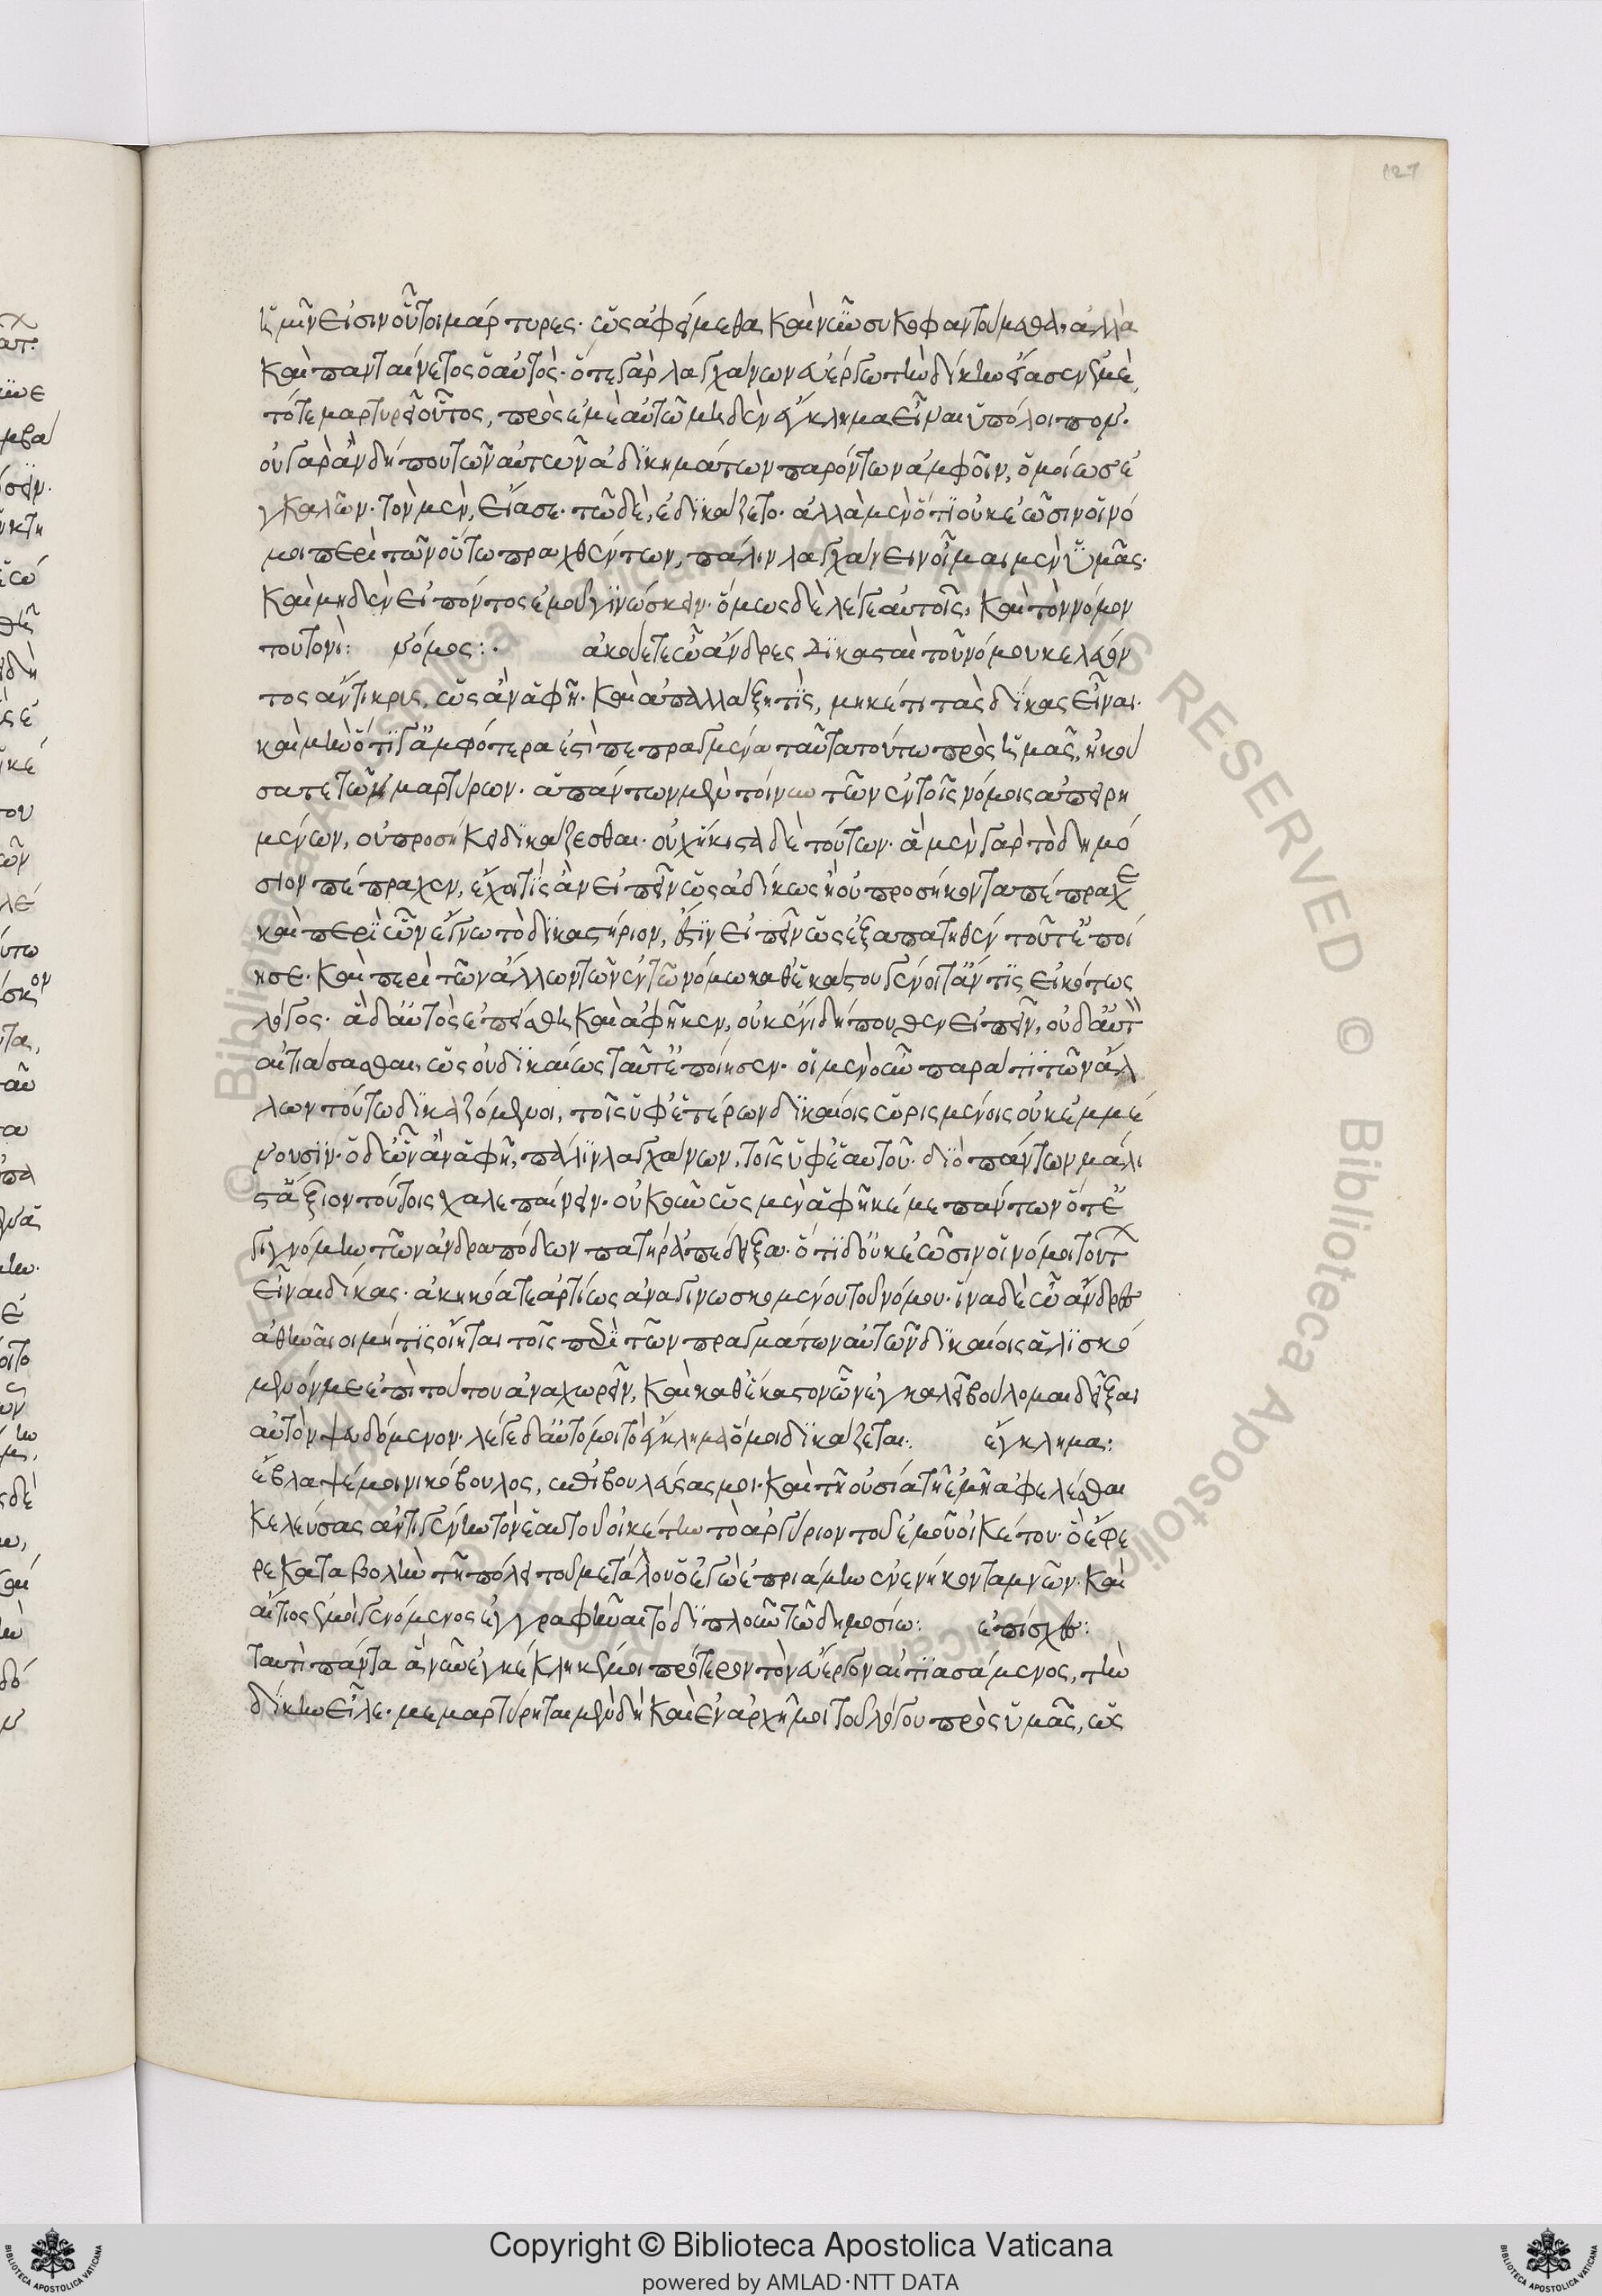 127
ὑμῖν εἰσιν οὗτοι μάρτυρες· ὡς ἀφείμεθα καὶ νῦν συκοφαντούμεθα, ἀλλὰ
καὶ Πανταίνετος ὁ αὐτός· ὅτε γὰρ λαγχάνων Εὐέργῳ τὴν δίκην εἴασεν ἐμὲ,
τότε μαρτυρεῖ οὗτος, πρὸς ἐμὲ αὐτῷ μηδὲν ἔγκλημα εἶναι ὑπόλοιπον·
οὐ γὰρ ἂν δήπου τῶν αὐτῶν ἀδικημάτων παρόντων ἀμφοῖν, ὁμοίως ἐ
γκαλῶν· τὸν μὲν, εἴασε· τῷ δὲ, ἐδικάζετο· ἀλλὰ μὲν ὅτι οὐκ ἐῶσιν οἱ νό
μοι περὶ τῶν οὕτω πραχθέντων, πάλιν λαγχάνειν οἶμαι μὲν ὑμᾶς·
καὶ μηδὲν εἰπόντος ἐμοῦ γινώσκειν· ὅμως δὲ λέγε αὐτοῖς, καὶ τὸν νόμον
τουτονί: νόμος:· ἀκούετε ὦ ἄνδρες δικασταὶ τοῦ νόμου κελεύον
τος ἄντικρυς, ὡς ἂν ἀφῇ· καὶ ἀπαλλάξῃ τὶς, μηκέτι τὰς δίκας εἶναι·
καὶ μὴν ὅτι γ' ἀμφότερα ἐστὶ πεπραγμένα ταῦτα τούτῳ πρὸς ἡμᾶς, ἠκού
σατε τῶν μαρτύρων· ἁπάντων μὲν τοίνυν τῶν ἐν τοῖς νόμοις ἀπειρη
μένων, οὐ προσήκει δικάζεσθαι· οὐχ ἥκιστα δὲ τούτων· ἃ μὲν γὰρ τὸ δημό
σιον πέπραχεν, ἔχοι τὶς ἂν εἰπεῖν ὡς ἀδίκως ἢ οὐ προσήκοντα πέπραχε
καὶ περὶ ὧν ἔγνω τὸ δικαστήριον, ἔστιν εἰπεῖν ὡς ἐξαπατηθὲν τοῦτ' ἐποί
ησε· καὶ περὶ τῶν ἄλλων τῶν ἐν τῷ νόμῳ καθ' ἑκάστου γένοιτ' ἄν τις εἰκότως
λόγος· ἃ δ' αὐτὸς ἐπείσθη καὶ ἀφῆκεν, οὐκ ἔνι δήπουθεν εἰπεῖν, οὐδ' αὑτὸν
αἰτιάσασθαι, ὡς οὐ δικαίως ταῦτ' ἐποίησεν· οἱ μὲν οὖν παρά τι τῶν ἄλ
λων τούτῳ δικαζόμενοι, τοῖς ὑφ' ἑτέρων δικαίοις ὡρισμένοις οὐκ ἐμμέ
νουσιν· ὁ δ' ὧν ἂν ἀφῇ, πάλιν λαγχάνων, τοῖς ὑφ' ἑαυτοῦ· διὸ πάντων μάλι
στ' ἄξιον τούτοις χαλεπαίνειν· οὐκοῦν ὡς μὲν ἀφῆκέ με πάντων ὅτ' ἐ
γιγνόμην τῶν ἀνδραπόδων πατὴρ ἀπέδειξα· ὅτι δ' οὐκ ἐῶσιν οἱ νόμοι τούτων
εἶναι δίκας· ἀκηκόατε ἀρτίως ἀναγινωσκομένου τοῦ νόμου· ἵνα δὲ ὦ ἄνδρες
ἀθηναῖοι μή τις οἴηται τοῖς περὶ τῶν πραγμάτων αὐτῶν δικαίοις ἁλισκό
μενόν με ἐπὶ τούτου ἀναχωρεῖν, καὶ καθ' ἕκαστον ὧν ἐγκαλεῖ βούλομαι δεῖξαι
αὐτὸν ψευδόμενον· λέγε δ' αὐτό μοι τὸ ἔγκλημα ὅ μοι δικάζεται·. ἔγκλημα:
ἔβλαψέ μοι νικόβουλος, ἐπιβουλεύσας μοι· καὶ τῇ οὐσίᾳ τῇ ἐμῇ ἀφελέσθαι
κελεύσας ἀντιγένην τὸν ἑαυτοῦ οἰκέτην τὸ ἀργύριον τοῦ ἐμοῦ οἰκέτου· ὃ ἔφε
ρε καταβολὴν τῇ πόλει τοῦ μετάλλου ὃ ἐγὼ ἐπριάμην ἐνενήκοντα μνῶν· καὶ
αἴτιος ἐμοὶ γενόμενος ἐγγραφῆναι τὸ διπλοῦν τῷ δημοσίῳ: ἐπίσχες:
ταυτὶ πάντα ἃ νῦν ἐγκέκληκεν ἐμοι πρότερον τὸν Εὔεργον αἰτιασάμενος, τὴν
δίκην εἷλε· μεμαρτύρηται μὲν δὴ καὶ ἐν ἀρχῇ μοι τοῦ λόγου πρὸς ὑμᾶς, ὡς
Copyright © Biblioteca Apostolica Vaticana
powered by AMLAD·NTT DATA